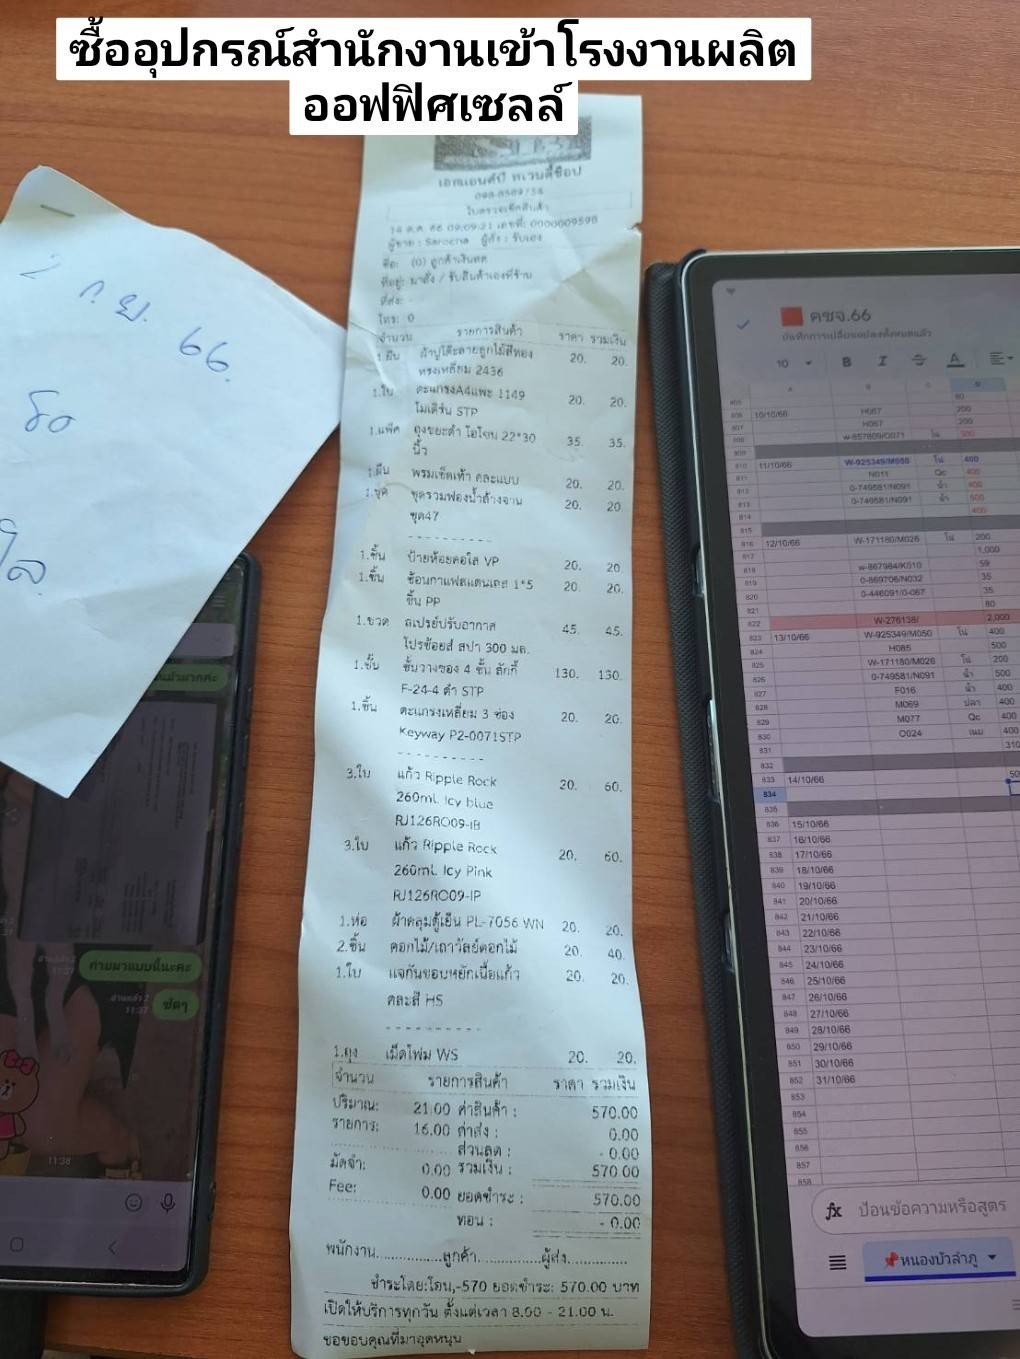 ซื้ออุปกรณ์สำนักงานเข้าโรงงานผลิต
ออฟฟิศเซลล์
เอกแอนด์บี ทเวนตี้ช็อป
ใบตรวจเช็คสินค้า
14 ต.ค. 66 09:09:21 เลขที่: 0000009598
ผู้ขาย : Saroena ผู้ส่ง : รับเอง
ชื่อ: (0) ลูกค้าเงินสด
ที่อยู่: มาสั่ง / รับสินค้าเองที่ร้าน
ที่ส่ง: -
โทร: 0
จำนวน รายการสินค้า ราคา รวมเงิน
1.ผืน ผ้าปูโต๊ะลายลูกไม้สีทอง 20. 20.
ทรงเหลี่ยม 2436
1.ใบ ตะแกรงA4แพะ 1149 20. 20.
โมเดิร์น STP
1.แพ็ค ถุงขยะดำ โอโซน 22*30 35. 35.
นิ้ว
1.ผืน พรมเช็ดเท้า คละแบบ 20. 20.
1.ชุด ชุดรวมฟองน้ำล้างจาน 20. 20
ชุด47
----------
1.ชิ้น ป้ายห้อยคอใส VP 20. 20
1.ชิ้น ช้อนกาแฟสแตนเลส 1*5 20. 20.
ชิ้น PP
1.ขวด สเปรย์ปรับอากาศ 45. 45.
โปรช้อยส์ สปา 300 มล.
1.ชิ้น ชั้นวางของ 4 ชั้น ลักกี้ 130. 130.
F-24-4 ดำ STP
1.ชิ้น ตะแกรงเหลี่ยม 3 ช่อง 20. 20.
Keyway P2-0071STP
----------
3.ใบ แก้ว Ripple Rock 20. 60.
260ml. Icy blue
RJ126RO09-IB
3.ใบ แก้ว Ripple Rock 20. 60.
260ml. Icy Pink
RJ126RO09-IP
1.ห่อ ผ้าคลุมตู้เย็น PL-7056 WN 20. 20.
2.ชิ้น ดอกไม้/เถาวัลย์ดอกไม้ 20. 40.
1.ใบ แจกันขอบหยักเนื้อแก้ว 20. 20.
คละสี HS
----------
1.ถุง เม็ดโฟม WS 20. 20.
จำนวน รายการสินค้า ราคา รวมเงิน
ปริมาณ: 21.00 ค่าสินค้า : 570.00
รายการ: 16.00 ค่าส่ง : 0.00
ส่วนลด : - 0.00
มัดจำ: 0.00 รวมเงิน : 570.00
Fee: 0.00 ยอดชำระ : 570.00
ทอน : - 0.00
พนักงาน..............ลูกค้า..............ผู้ส่ง..............
ชำระโดย:โอน,-570 ยอดชำระ: 570.00 บาท
เปิดให้บริการทุกวัน ตั้งแต่เวลา 8.00 - 21.00 น.
ขอขอบคุณที่มาอุดหนุน
2 ก.ย. 66
ถ่ายมาแบบนี้นะคะ
อ่านแล้ว 2
11:37
ชัดๆ
11:38
คชจ.66
บันทึกการเปลี่ยนแปลงทั้งหมดแล้ว
10 B I S A
10/10/66 H067 200
H067 200
11/10/66 W-925349/M050 โน่ 400
N011 Qc 400
0-749581/N091 น้ำ 400
0-749581/N091 น้ำ 500
400
12/10/66 W-171180/M026 โน่ 200
1,000
w-867984/K010 59
0-869706/N032 35
0-446091/0-067 35
80
822 W-276138/ 2,000
823 13/10/66 W-925349/M050 โน่ 400
824 H085 500
825 W-171180/M026 โน่ 200
826 0-749581/N091 น้ำ 500
827 F016 น้ำ 400
828 M069 ปลา 400
829 M077 Qc 400
830 O024 เนม 400
831 310
832
833 14/10/66 50
834
835
836 15/10/66
837 16/10/66
838 17/10/66
839 18/10/66
840 19/10/66
841 20/10/66
842 21/10/66
843 22/10/66
844 23/10/66
845 24/10/66
846 25/10/66
847 26/10/66
848 27/10/66
849 28/10/66
850 29/10/66
851 30/10/66
852 31/10/66
853
854
855
856
857
858
fx ป้อนข้อความหรือสูตร
หนองบัวลำภู